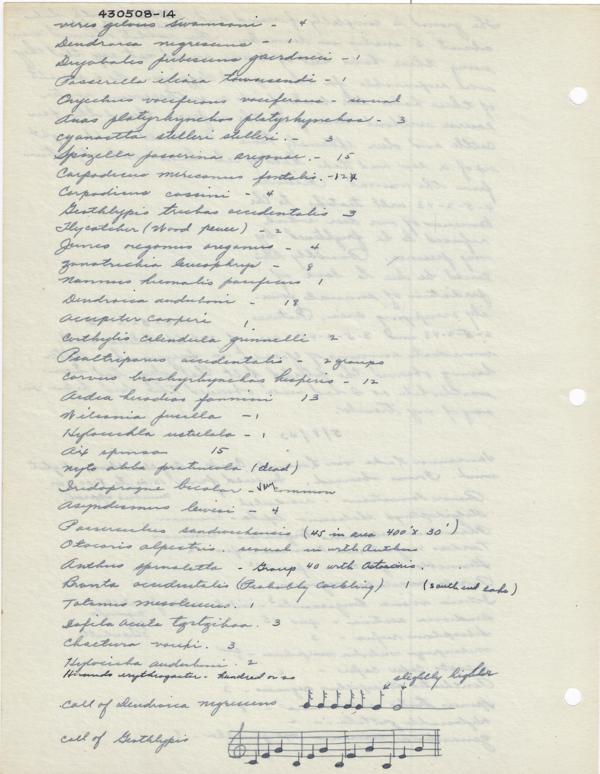 430508-14
vireo gilvus swainsoni - 4
Dendroica nigrescens - 1
Dryobates pubescens gairdnerii - 1
Passerella iliaca townsendi - 1
Oxyechus vociferous vociferous - several
Anas platyrhynchos platyrhynchos - 3
cyanocitta stelleri stelleri. - 3
Spizella passerina arizonae. - 15
Carpodacus mexicanus frontalis. - 124
Carpodicus cassini - 4
Geothlypis trichas occidentalis 3
Flycatcher (Wood pewee) - 2
Junco oregonus oreganus - 4
Zonotrichia leucophrys - 8
Nannus hiemalis pacificus 1
Dendroica auduboni - 18
Accipiter Cooperi 1
Corthylio calendula grinnelli 2
Psaltriparus accidentalis - 2 groups
Corvus brachyrhynchos hesperis - 12
Ardea herodias fannini 13
Wilsonia pusilla - 1
Hylocichla ustulata - 1
Aix sponsa 15
Nyto alba pratincola (dead)
Iridoprogne bicolor - very common
Asyndismus lewisi - 4
Passerculus sandwichensis (45 in area 400' x 30')
Otocoris alpestris. several in with Anthus
Anthus spinoletta - Group 40 with Otocoris.
Branta occidentalis (Probably Cackling) 1 (South end lake)
Totanus meloleucus. 1
Dafila acuta tzitzihoa. 3
Chaetura vauxi. 3
Hylocichla auduboni. 2
Hirundo erythrogaster. hundred or so
slightly higher
call of Dendroica nigrescens
call of Geothlypis